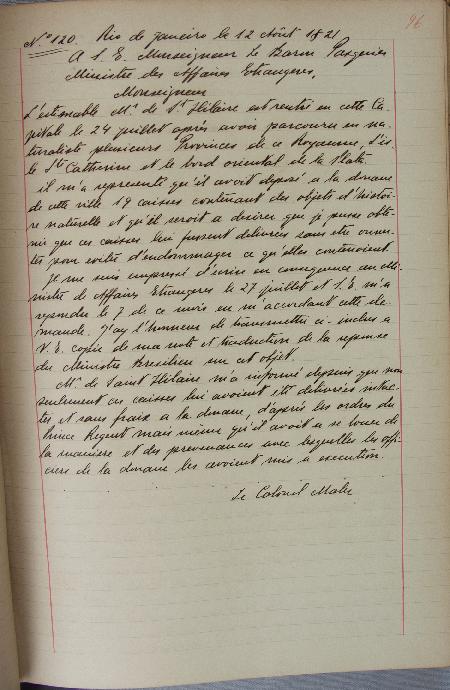 96
N.º 120. Rio de janeiro le 12 Août 1821
A S. E. Monseigneur Le Baron Pasquier
Ministre des Affaires Etrangeres,
Monseigneur
L'estimable Mr. de St. Hilaire est rentré en cette Ca-
pitale le 24 juillet après avoir parcouru en na-
turaliste plusieurs Provinces de ce Royaume, l'is-
le Ste Catherine et le bord oriental de la Plata.
il m'a representé qu'il avoit deposé a la douane
de cette ville 19 caisses contenant des objets d'histoi-
re naturelle et qu'il seroit a desirer que je pusse obte-
nir que ces caisses lui fussent delivrées sans etre ouver-
tes pour eviter d'endommager ce qu'elles contenoient.
Je me suis empressé d'ecrire en consequence au Mi-
nistre de Affaires Etrangeres le 27 juillet et S. E. m'a
repondu le 7 de ce mois en m'accordant cette de-
mande. J'ay l'honneur de transmettre ci-inclus a
V. E. copie de ma note et traduction de la reponse
du Ministre Bresilien sur cet objet.
Mr. de Saint Hilaire m'a informé depuis que non
seulement ces caisses lui avoient été delivrées intac-
tes et sans fraix a la douane, d'après les ordres du
Prince Regent mais même qu'il avoit a se louer de
la maniere et des prevenances avec lesquelles les offi-
ciers de la douane les avoient mis a execution.
Le Colonel Maler